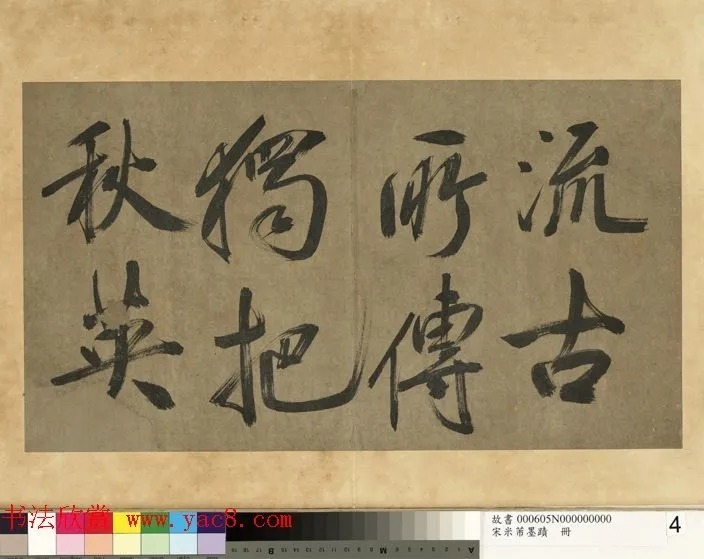 流古
所傳
獨把
秋英
书法欣赏 www.yac8.com
故書 000605N000000000
宋米芾墨蹟 冊
4